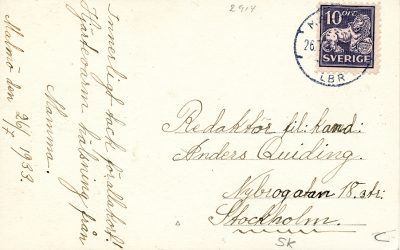 2914
Innerligt tack för alla kort.
Hjärtevarm hälsning från
Mamma.
Malmö den 26/7 1933.
10 ÖRE
SVERIGE
26.
LBR
Redaktör fil: kand:
Anders Quiding.
Nybrogatan 18.
Stockholm.
SK